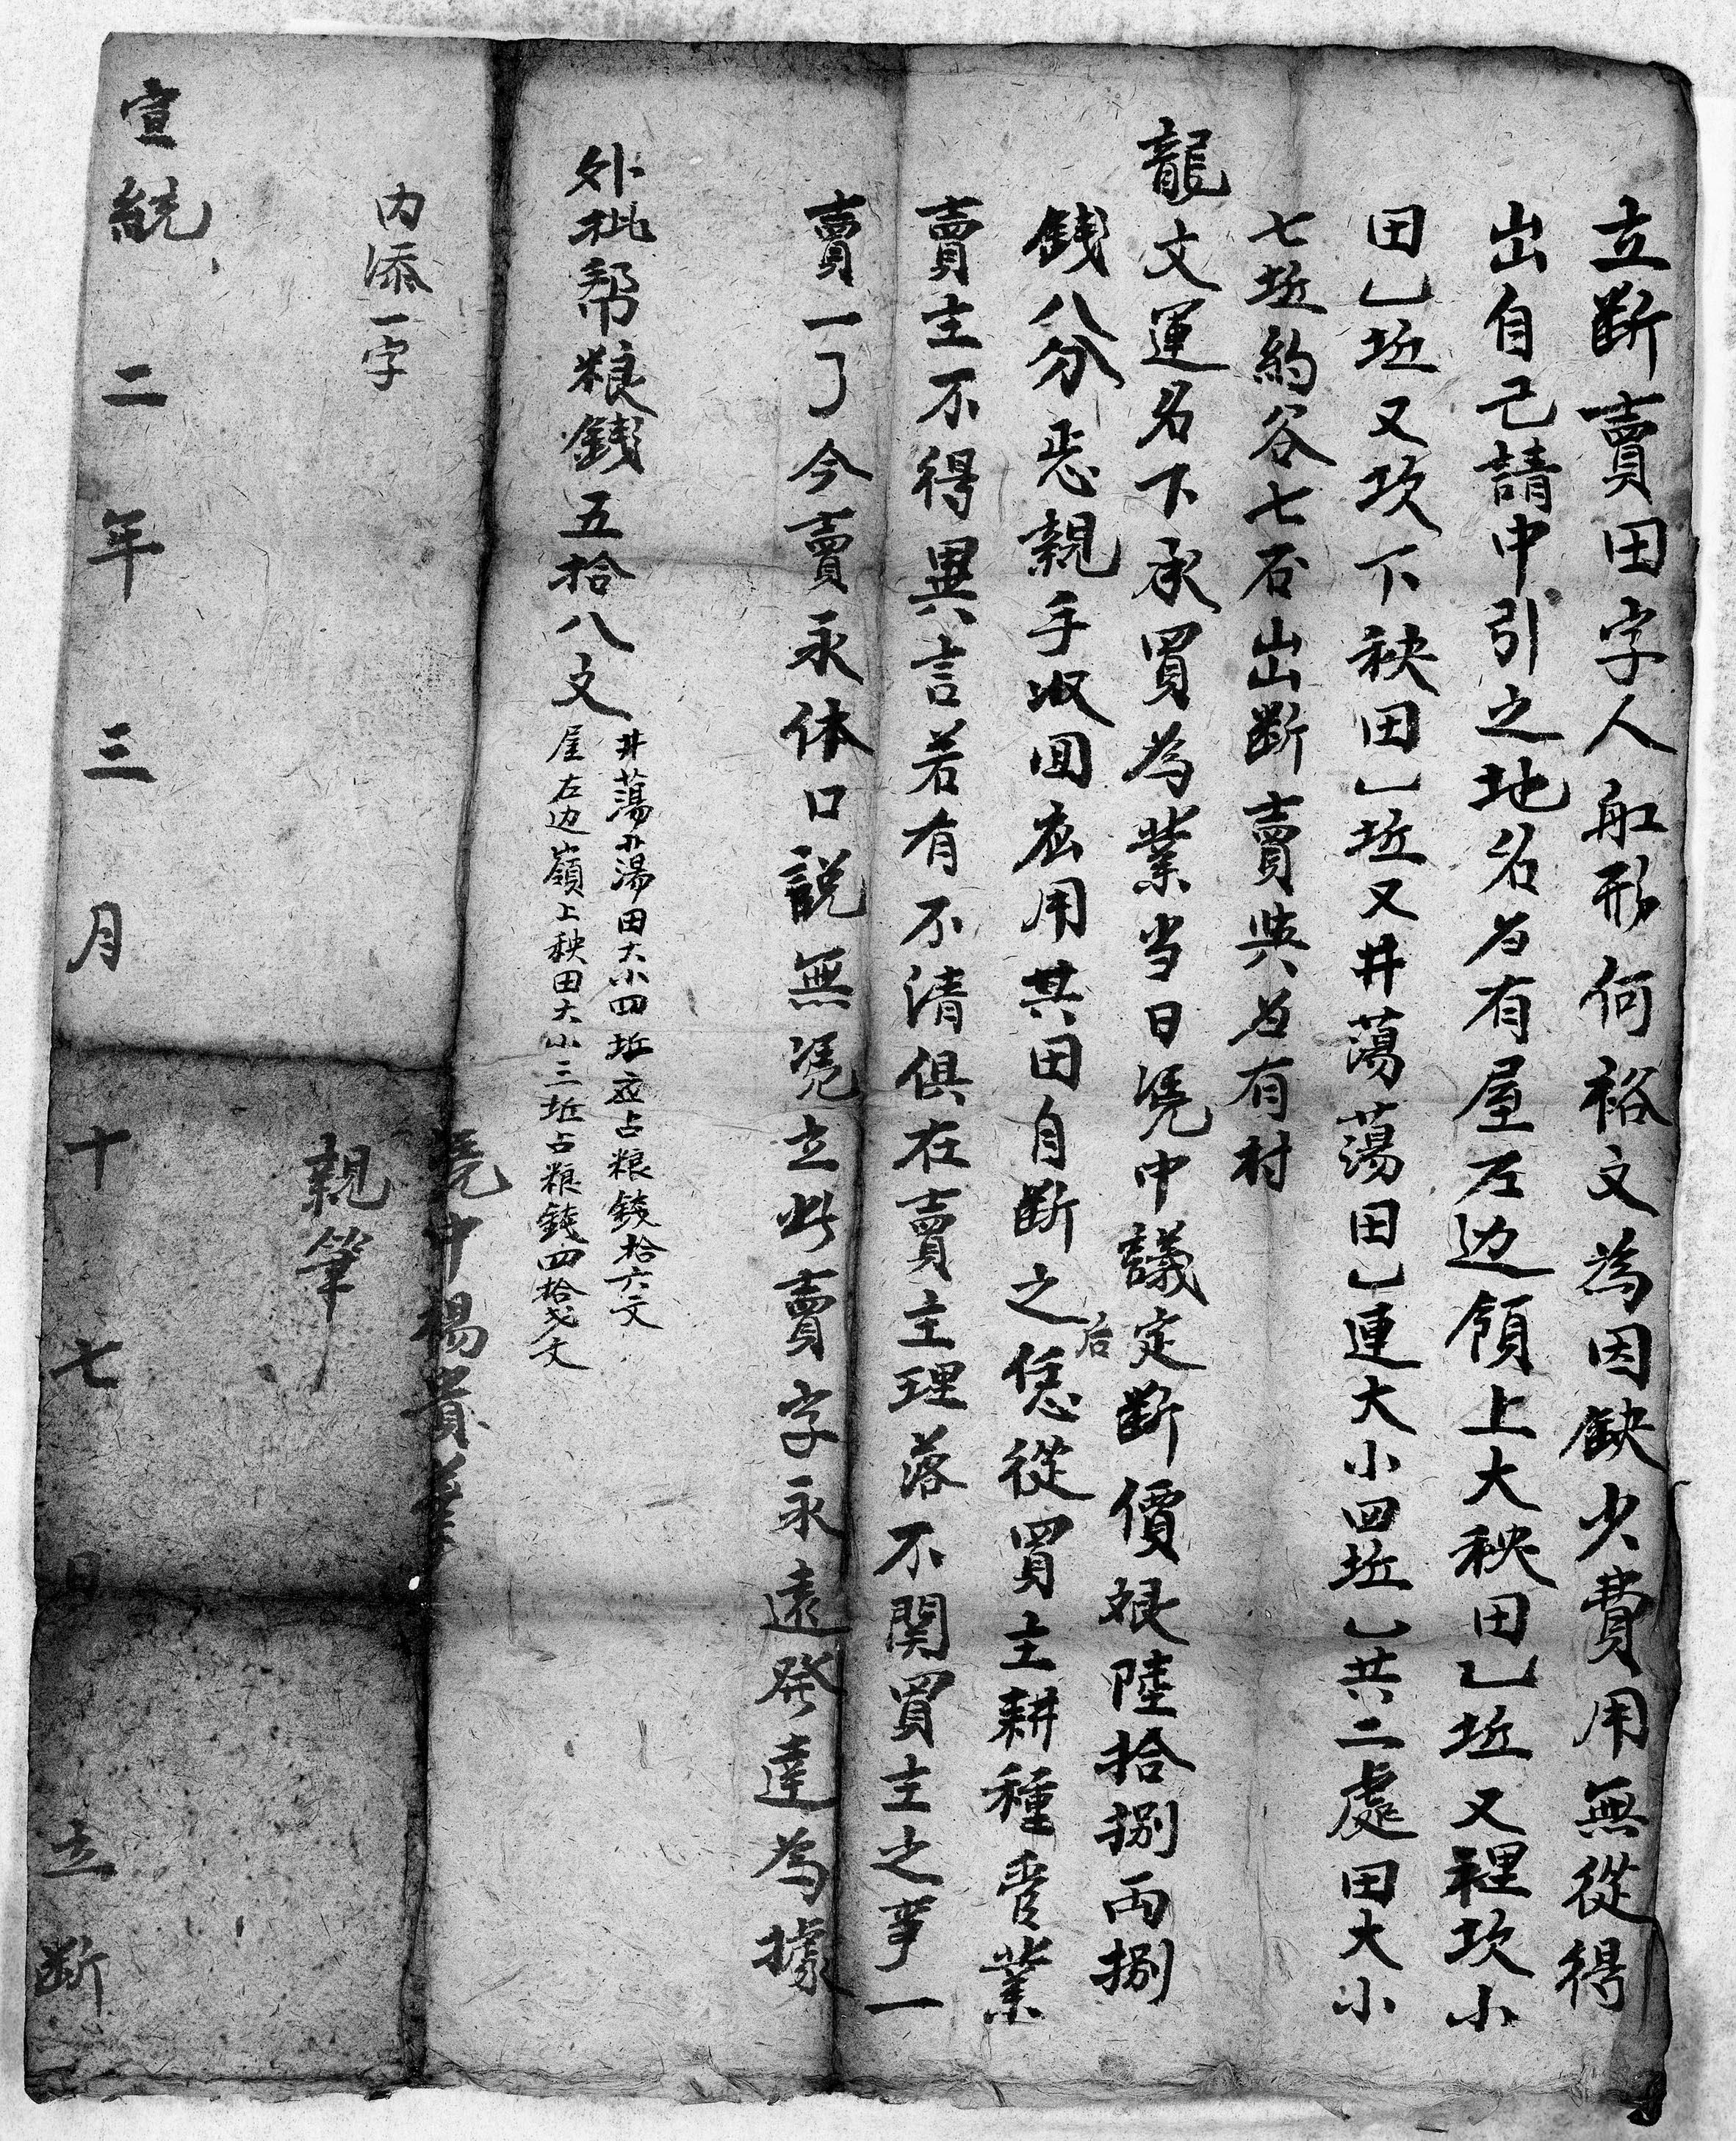 立断賣田字人舡形何裕文為因缺少費用無從得
出自己請中引之地名岩有屋左边領上大秧田乚坵又裡坎小
田乚坵又坎下秧田乚坵又井蕩蕩田乚連大小四坵乚共二處田大小
七坵約谷七石出断賣與岩有村
龍文運名下承買為業当日凴中議定断價娘陸拾捌両捌
錢八分悉親手収回應用其田自断之后恁從買主耕種管業
賣主不得異言若有不清俱在賣主理落不関買主之事一
賣一了今賣永休口説無凴立此賣字永遠発達為據
外批帮粮錢五拾八文
井蕩蕩田大小四坵应占粮錢拾六文
屋左边嶺上秧田大小三坵占粮錢四拾弍文
凴中楊貴華
内添一字
親筆
宣統二年三月十七日立断